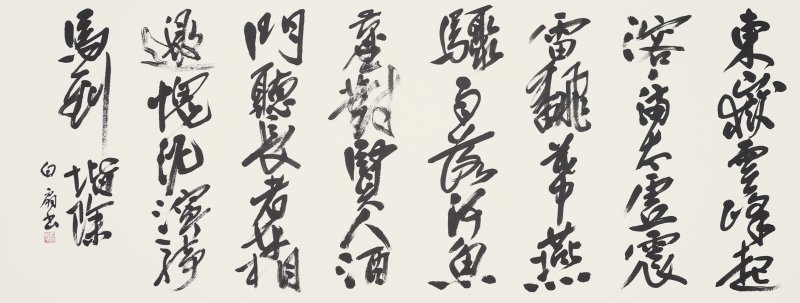 東嶽雲峰起
溶々滿太虛震
雷翻幕燕
驟雨落河魚
座對賢人酒
門聽長者車相
邀愧泥濘騎
馬到階除
白扇書